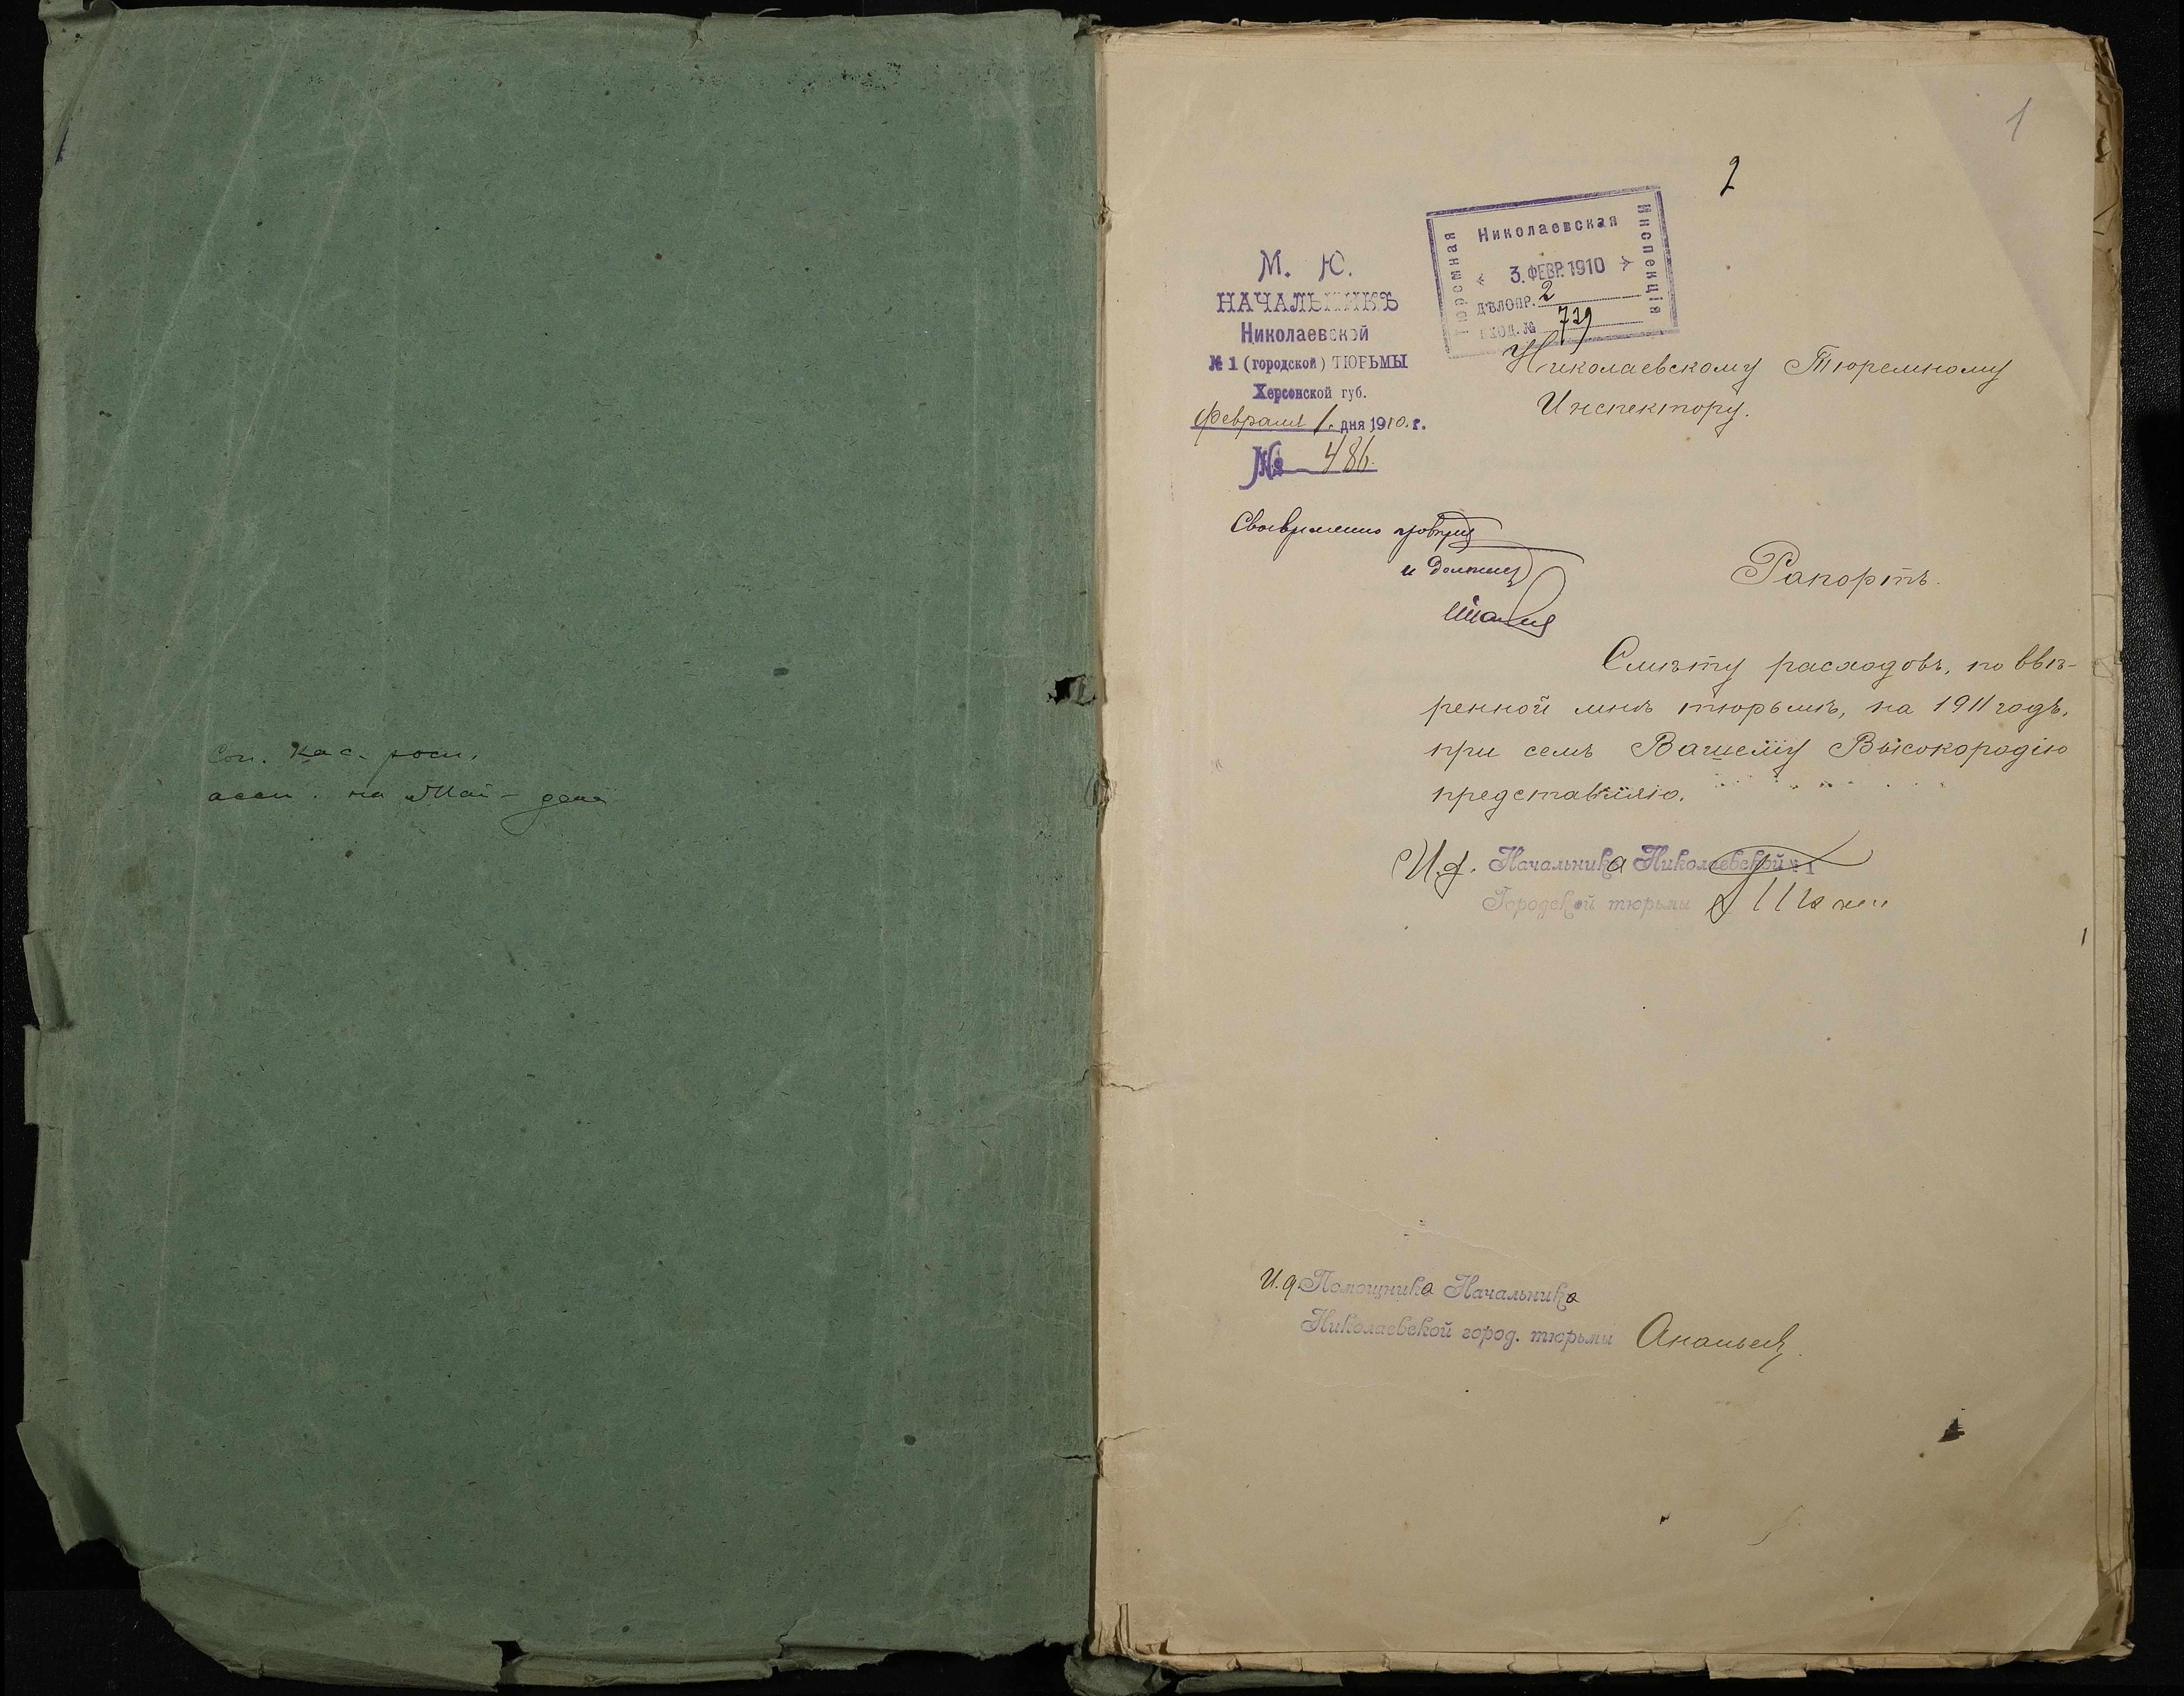 на
1
2
Тюремная
Николаевская
Инспекція
3. ФЕВР. 1910
ДѢЛОПР. 2
ВХОД. № 729
М. Ю.
НАЧАЛЬНИКЪ
Николаевской
№ 1 (городской) ТЮРЬМЫ
Херсонской губ.
Февраля 1 дня 1910 г.
№ 486.
Николаевскому Тюремному
Инспектору.
Своевременно
и
Рапортъ.
Смѣту расходовъ, по ввѣ-
ренной мнѣ тюрьмѣ, на 1911 годъ,
при семъ Вашему Высокородію
представляю.
И.д. Начальника Николаевской № 1
Городской тюрьмы
И.д. Помощника Начальника
Николаевской город. тюрьмы Ананьевъ